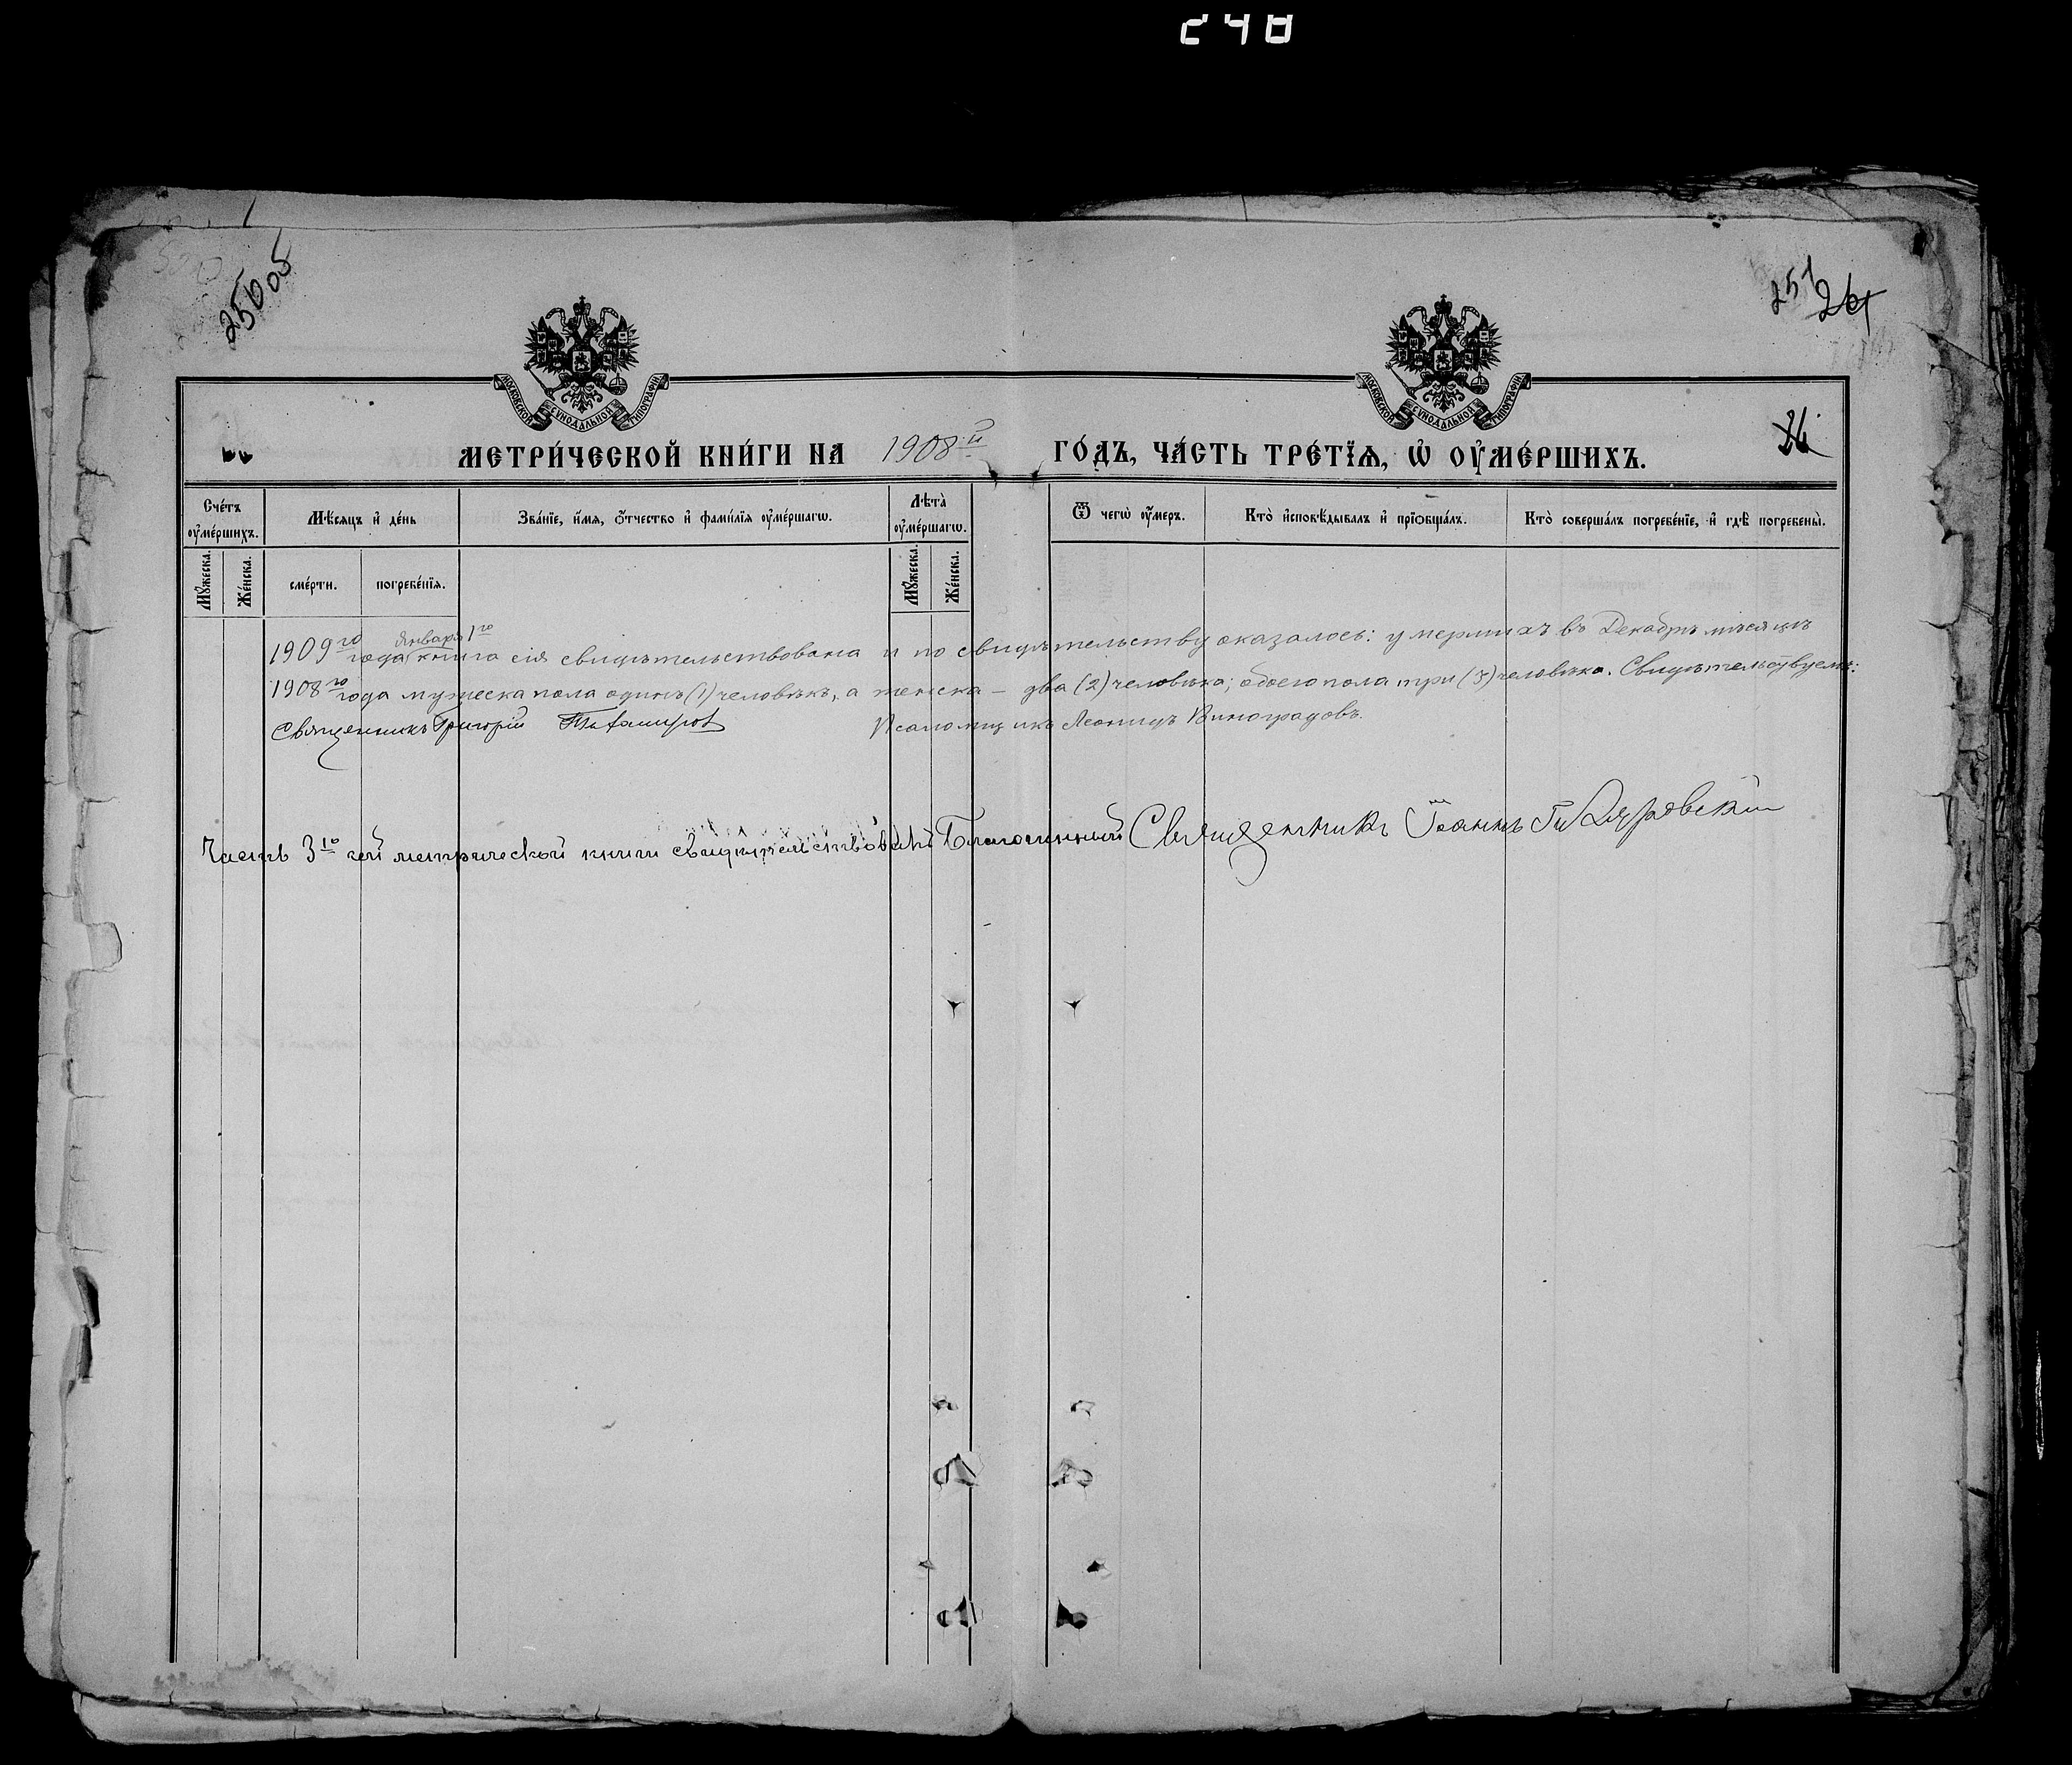 248
250 об
251
26
МОСКОВСКОЙ СѴНОДАЛЬНОЙ ТИПОГРАФІИ
МОСКОВСКОЙ СѴНОДАЛЬНОЙ ТИПОГРАФІИ
МЕТРИ́ЧЕСКОЙ КНИ́ГИ НА 1908й ГО́ДЪ, ЧА́СТЬ ТРЕ́ТЇѦ, Ѡ҆ ОУ҆МЕ́РШИХЪ.
Сче́тъ оу҆ме́ршихъ.
Мѣ́сѧцъ и҆ де́нь
Зва́нїе, и҆́мѧ, ѻ҆́тчество и҆ фами́лїѧ оу҆ме́ршагѡ.
Лѣ́та оу҆ме́ршагѡ.
Ѿ чегѡ̀ оу҆́меръ.
Кто̀ и҆сповѣ́дывалъ и҆ прїѻбща́лъ.
Кто̀ соверша́лъ погребе́нїе, и҆ гдѣ̀ погребены̀.
Мꙋ́жеска.
Же́нска.
сме́рти.
погребе́нїѧ.
Мꙋ́жеска.
Же́нска.
1909го года января 1го книга сія свидѣтельствована и по свидѣтельству оказалось: умершихъ въ Декабрѣ мѣсяцѣ
1908го года мужеска пола одинъ (1) человѣкъ, а женска – два (2) человѣка; обоего пола три (3) человѣка. Свидѣтельствуемъ:
Священникъ Григорій Псаломщикъ Леонидъ Виноградовъ.
Часть 3ю сей метрической книги свидѣтельствовалъ Благочинный Священникъ Іоаннъ